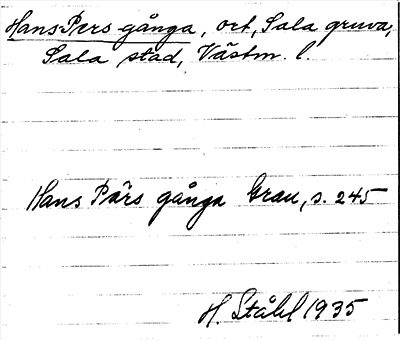 Hans Pers gånga, ort, Sala gruva,
Sala stad, Västm. l.
Hans Pärs gånga Grau, s. 245
H. Ståhl 1935